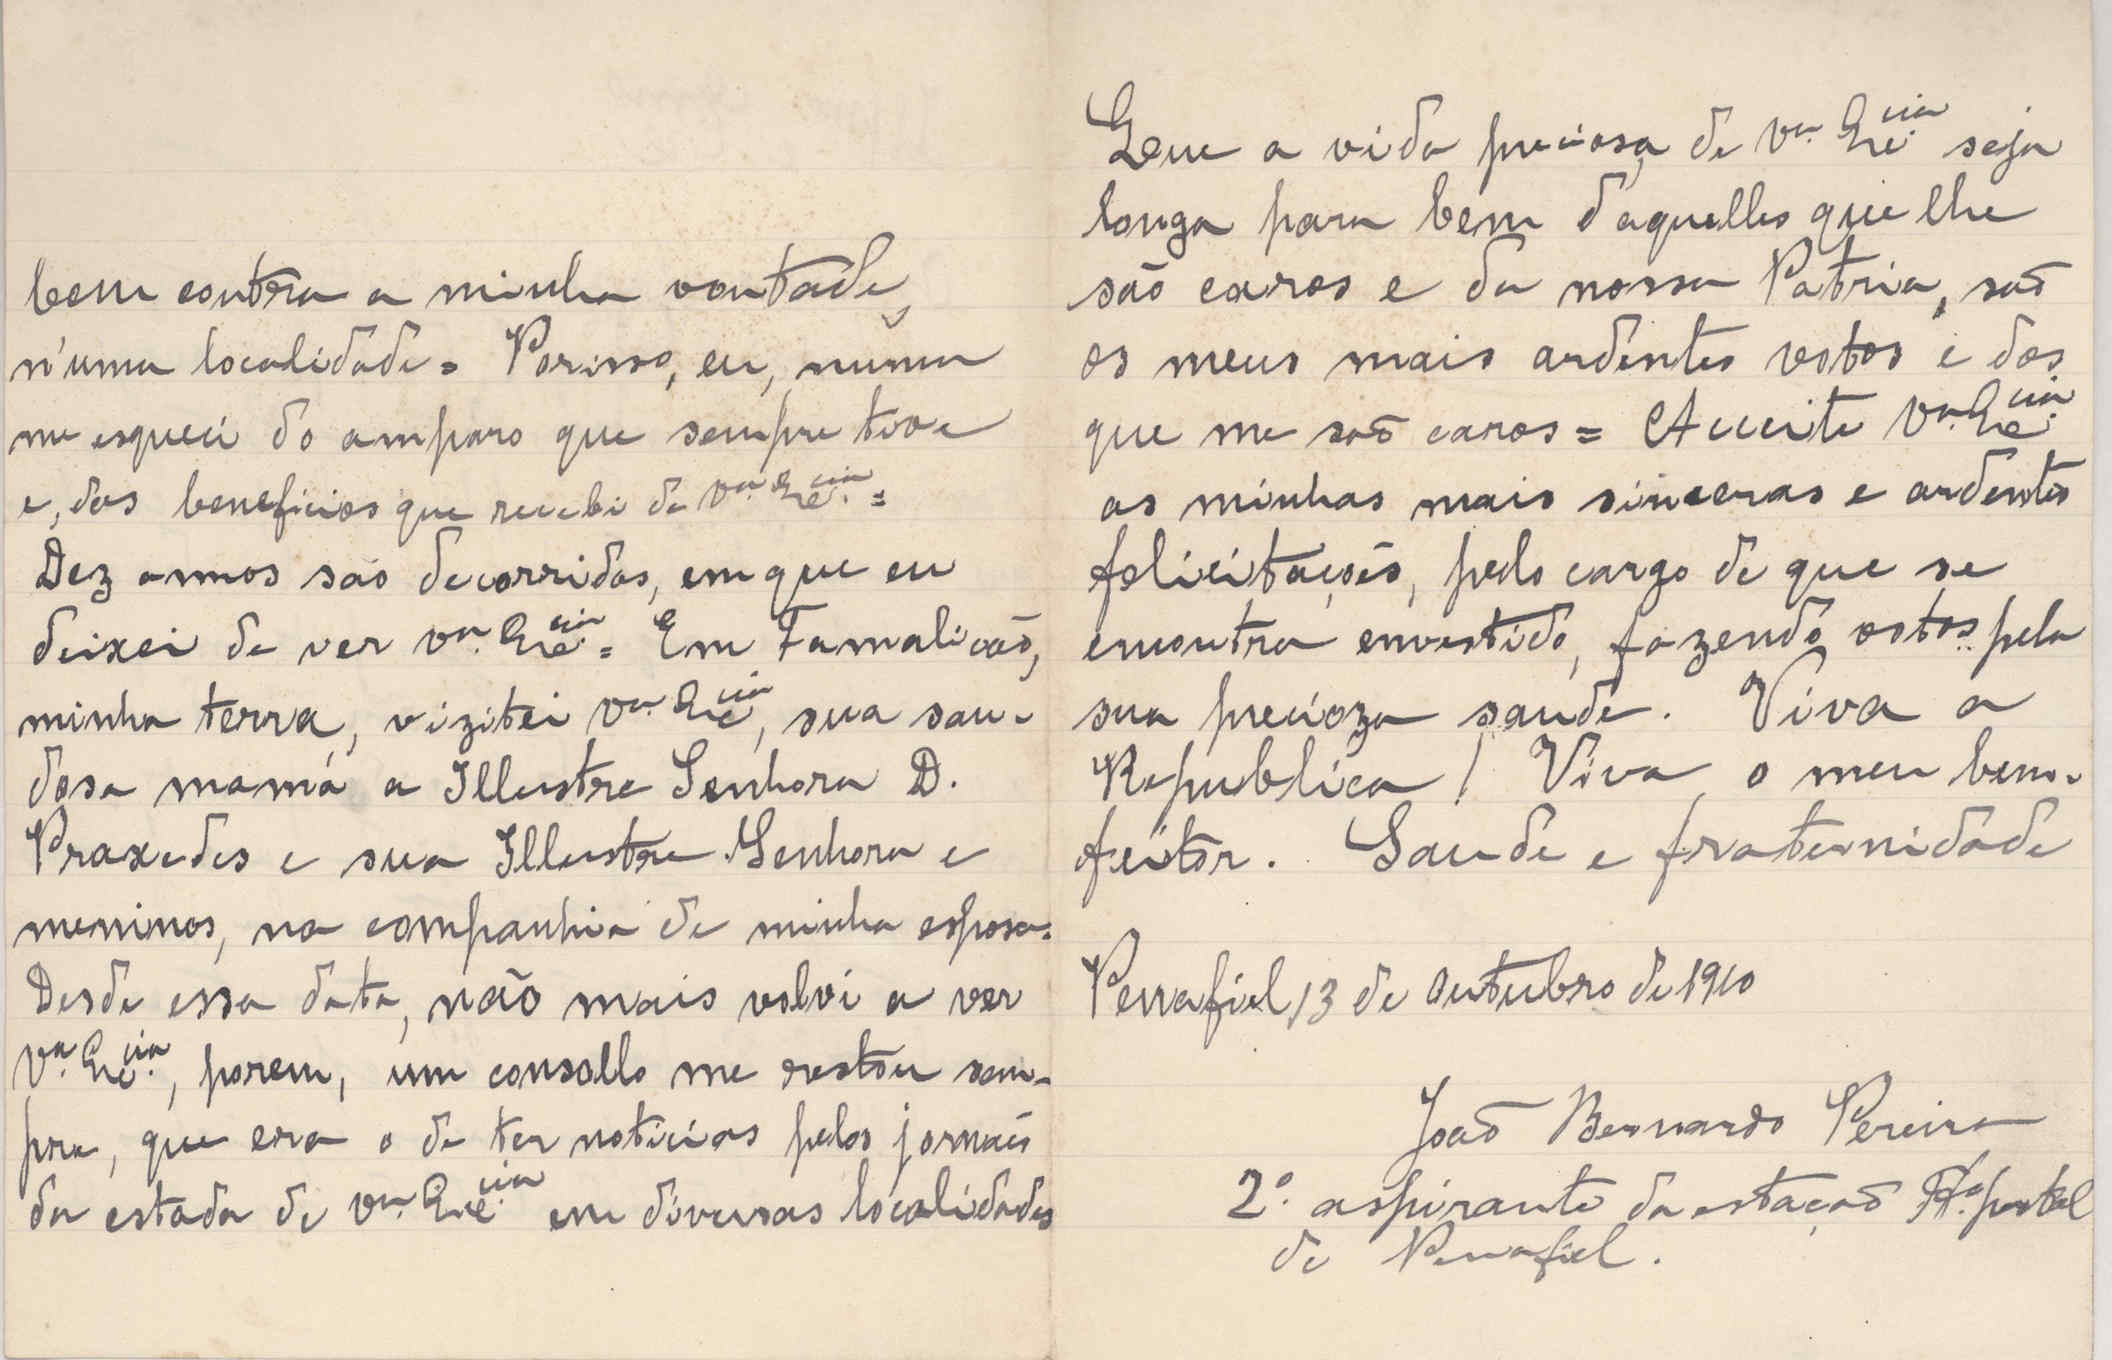 bem contra a minha vontade,
n'uma localidade = Porisso, eu, nunca
me esqueci do amparo que sempre tive
e, dos beneficios que recebi de Vª. Exᶜⁱᵃ. =
Dez annos são decorridos, em que eu
deixei de ver Vª. Exᶜⁱᵃ. = Em Famalicão,
minha terra, vizitei Vª. Exᶜⁱᵃ, sua sau-
dosa mamá a Illustre Senhora D.
Praxedes e sua Illustre Senhora e
meninos, na companhia de minha esposa.
Desde essa data, não mais volvi a ver
Vª. Exᶜⁱᵃ., porem, um consollo me restou sem-
pre, que era o de ter noticias pelos jornaes
da estada de Vª. Exᶜⁱᵃ. em diversas localidades
Que a vida preciosa de Vª. Exᶜⁱᵃ. seja
longa para bem d'aquelles que lhe
são caros e da nossa Patria, são
os meus mais ardentes votos e dos
que me são caros = Acceite Vª. Exᶜⁱᵃ.
as minhas mais sinceras e ardentes
felicitações, pelo cargo de que se
encontra envestido, fazendo votos pela
sua precioza saude. Viva a
Republica! Viva o meu bem-
feitor. Saude e fraternidade
Penafiel 13 de Outubro de 1910
João Bernardo Pereira
2º. aspirante da estação postal
de Penafiel.